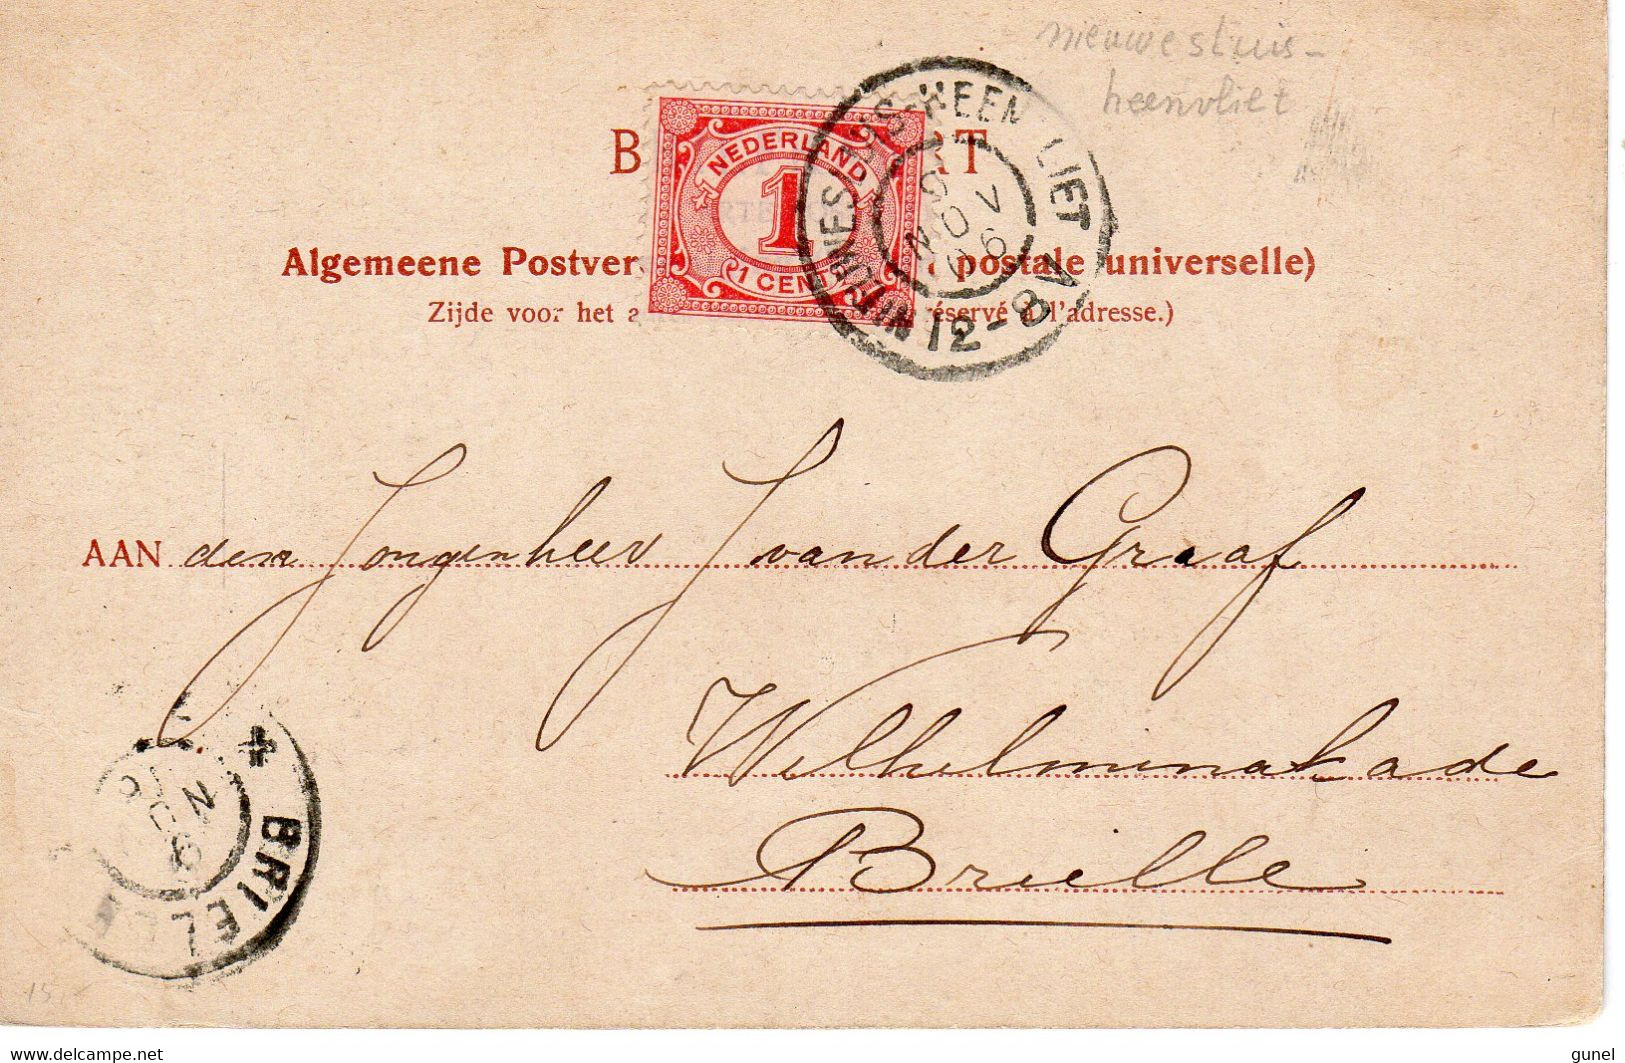 nieuwesluis-
heenvliet
B RT
NEDERLAND
1
1 CENT
HEEN LIET
NOV
06
12-8V
Algemeene Postver postale universelle)
Zijde voor het a éservé à l'adresse.)
AAN den Jongenheer J van der Graaf
Wilhelminakade
Brielle
BRIELLE
15,-
delcampe.net
gunel